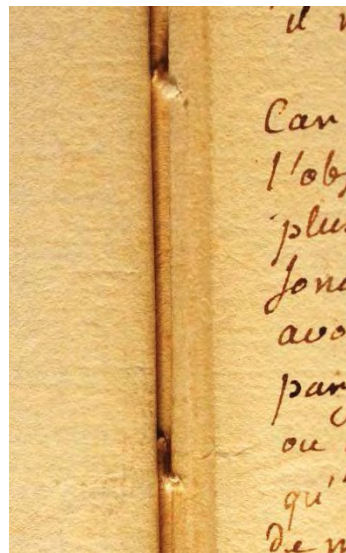 il
Car
l'obj
plus
fonc
avo
par
ou
qu'
de m